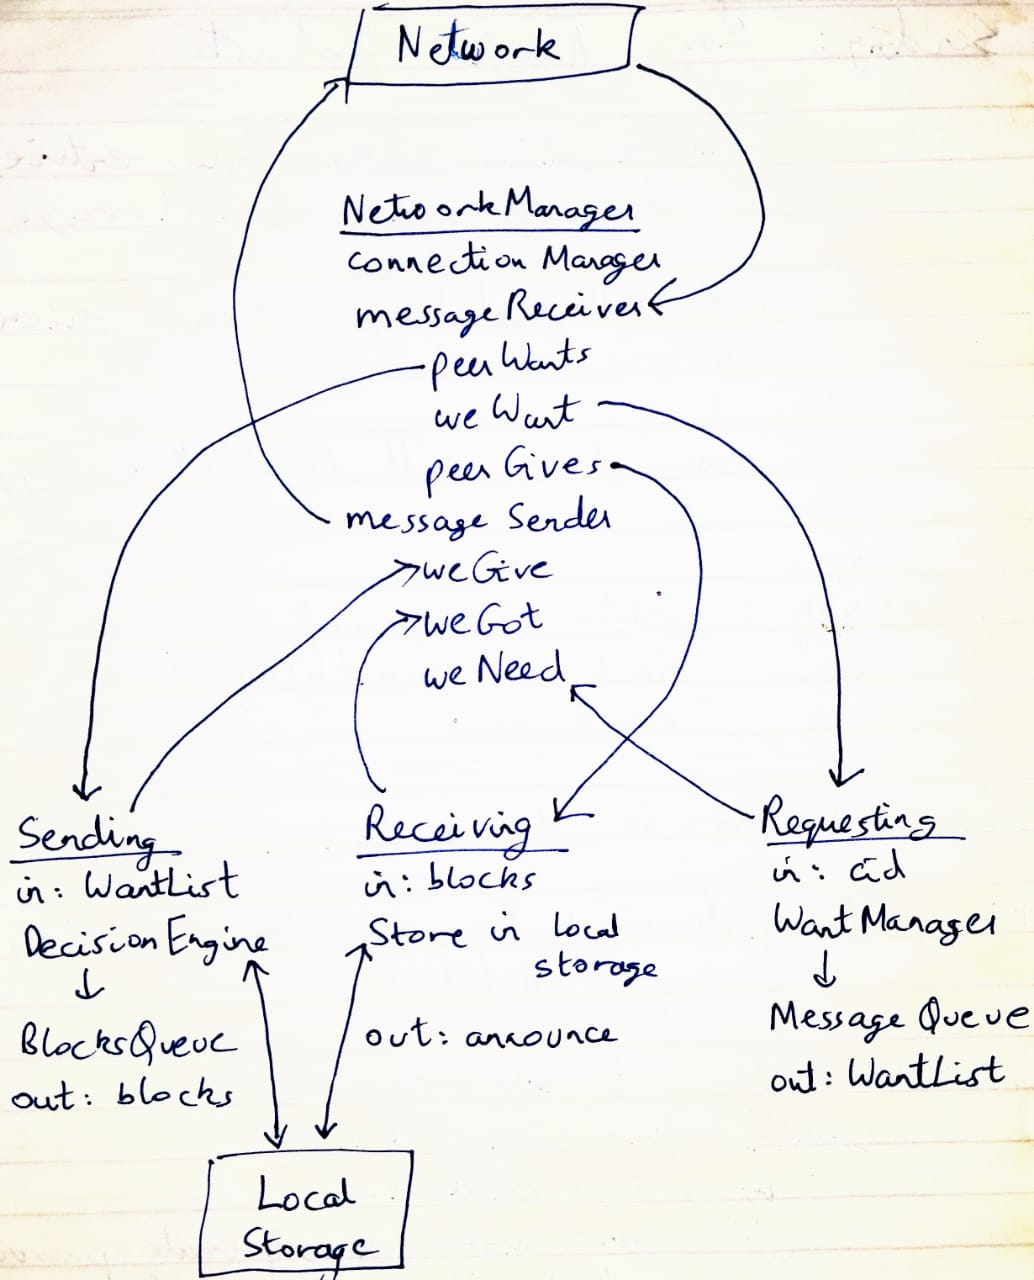 Network
NetworkManager
connection Manager
message Receiver
peer Wants
we Want
peer Gives
message Sender
we Give
we Got
we Need
Sending
in: WantList
Decision Engine
BlocksQueue
out: blocks
Receiving
in: blocks
Store in local
storage
out: announce
Requesting
in: cid
Want Manager
Message Queue
out: WantList
Local
Storage